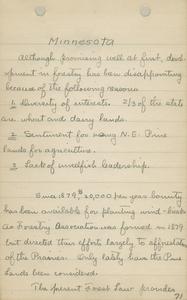 Minnesota
Although promising well at first, devel-
opment in forestry has been disappointing
because of the following reasons
1 Diversity of interests. 2/3 of the state
are wheat and dairy lands.
2. Sentiment for N.E. Pine
lands for agriculture.
3. Lack of unselfish leadership.
Since 1879, $20,000 per year bounty
has been available for planting wind-breaks
A Forestry Association was formed in 1879
but directed their effort largely to afforestation
of the Prairies. Only lately have the Pine
Lands been considered.
The present Forest Law provides